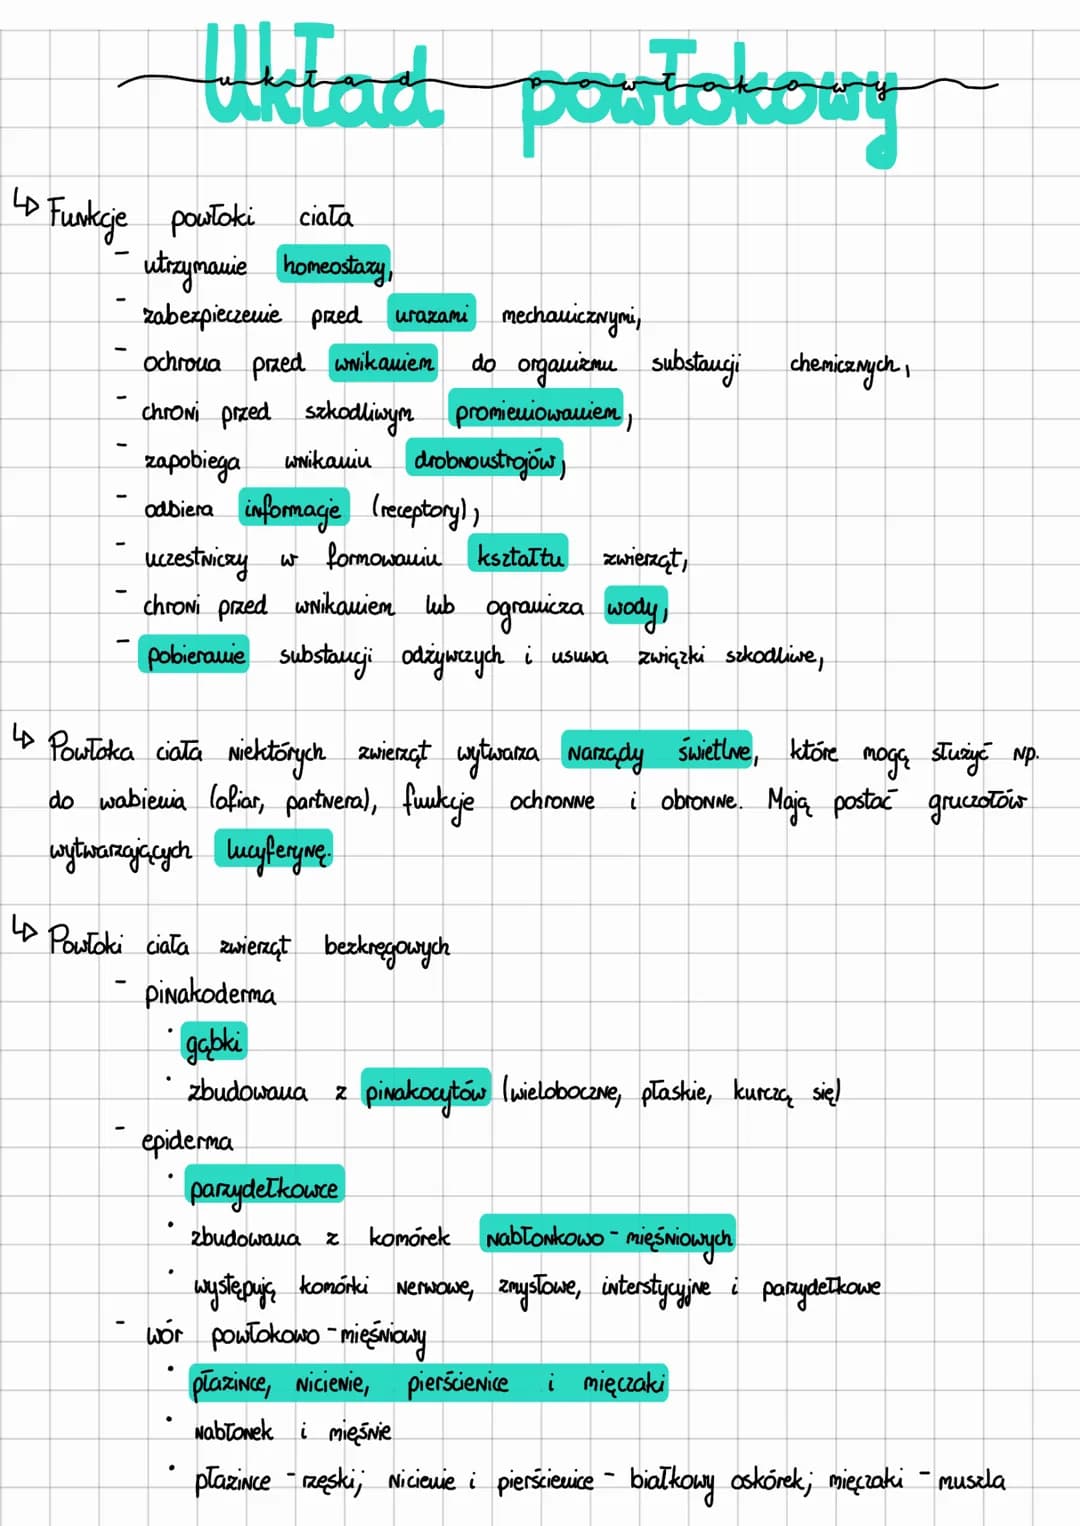 Układ powłokowy
układ powłokowy
↳ Funkcje powłoki ciała
- utrzymanie homeostazy,
- zabezpieczenie przed urazami mechanicznymi,
- ochrona przed wnikaniem do organizmu substancji chemicznych,
- chroni przed szkodliwym promieniowaniem,
- zapobiega wnikaniu drobnoustrojów,
- odbiera informacje (receptory),
- uczestniczy w formowaniu kształtu zwierząt,
- chroni przed wnikaniem lub ogranicza wody,
- pobieranie substancji odżywczych i usuwa związki szkodliwe,
↳ Powłoka ciała niektórych zwierząt wytwarza narządy świetlne, które mogą służyć np.
do wabienia (ofiar, partnera), funkcje ochronne i obronne. Mają postać gruczołów
wytwarzających lucyferynę.
↳ Powłoki ciała zwierząt bezkręgowych
- pinakoderma
· gąbki
· zbudowana z pinakocytów (wieloboczne, płaskie, kurczą się)
- epiderma
· parzydełkowce
· zbudowana z komórek nabłonkowo-mięśniowych
· występują komórki nerwowe, zmysłowe, interstycyjne i parzydełkowe
- wór powłokowo-mięśniowy
· płazińce, nicienie, pierścienice i mięczaki
· nabłonek i mięśnie
· płazińce - rzęski; nicienie i pierścienice - białkowy oskórek; mięczaki - muszla